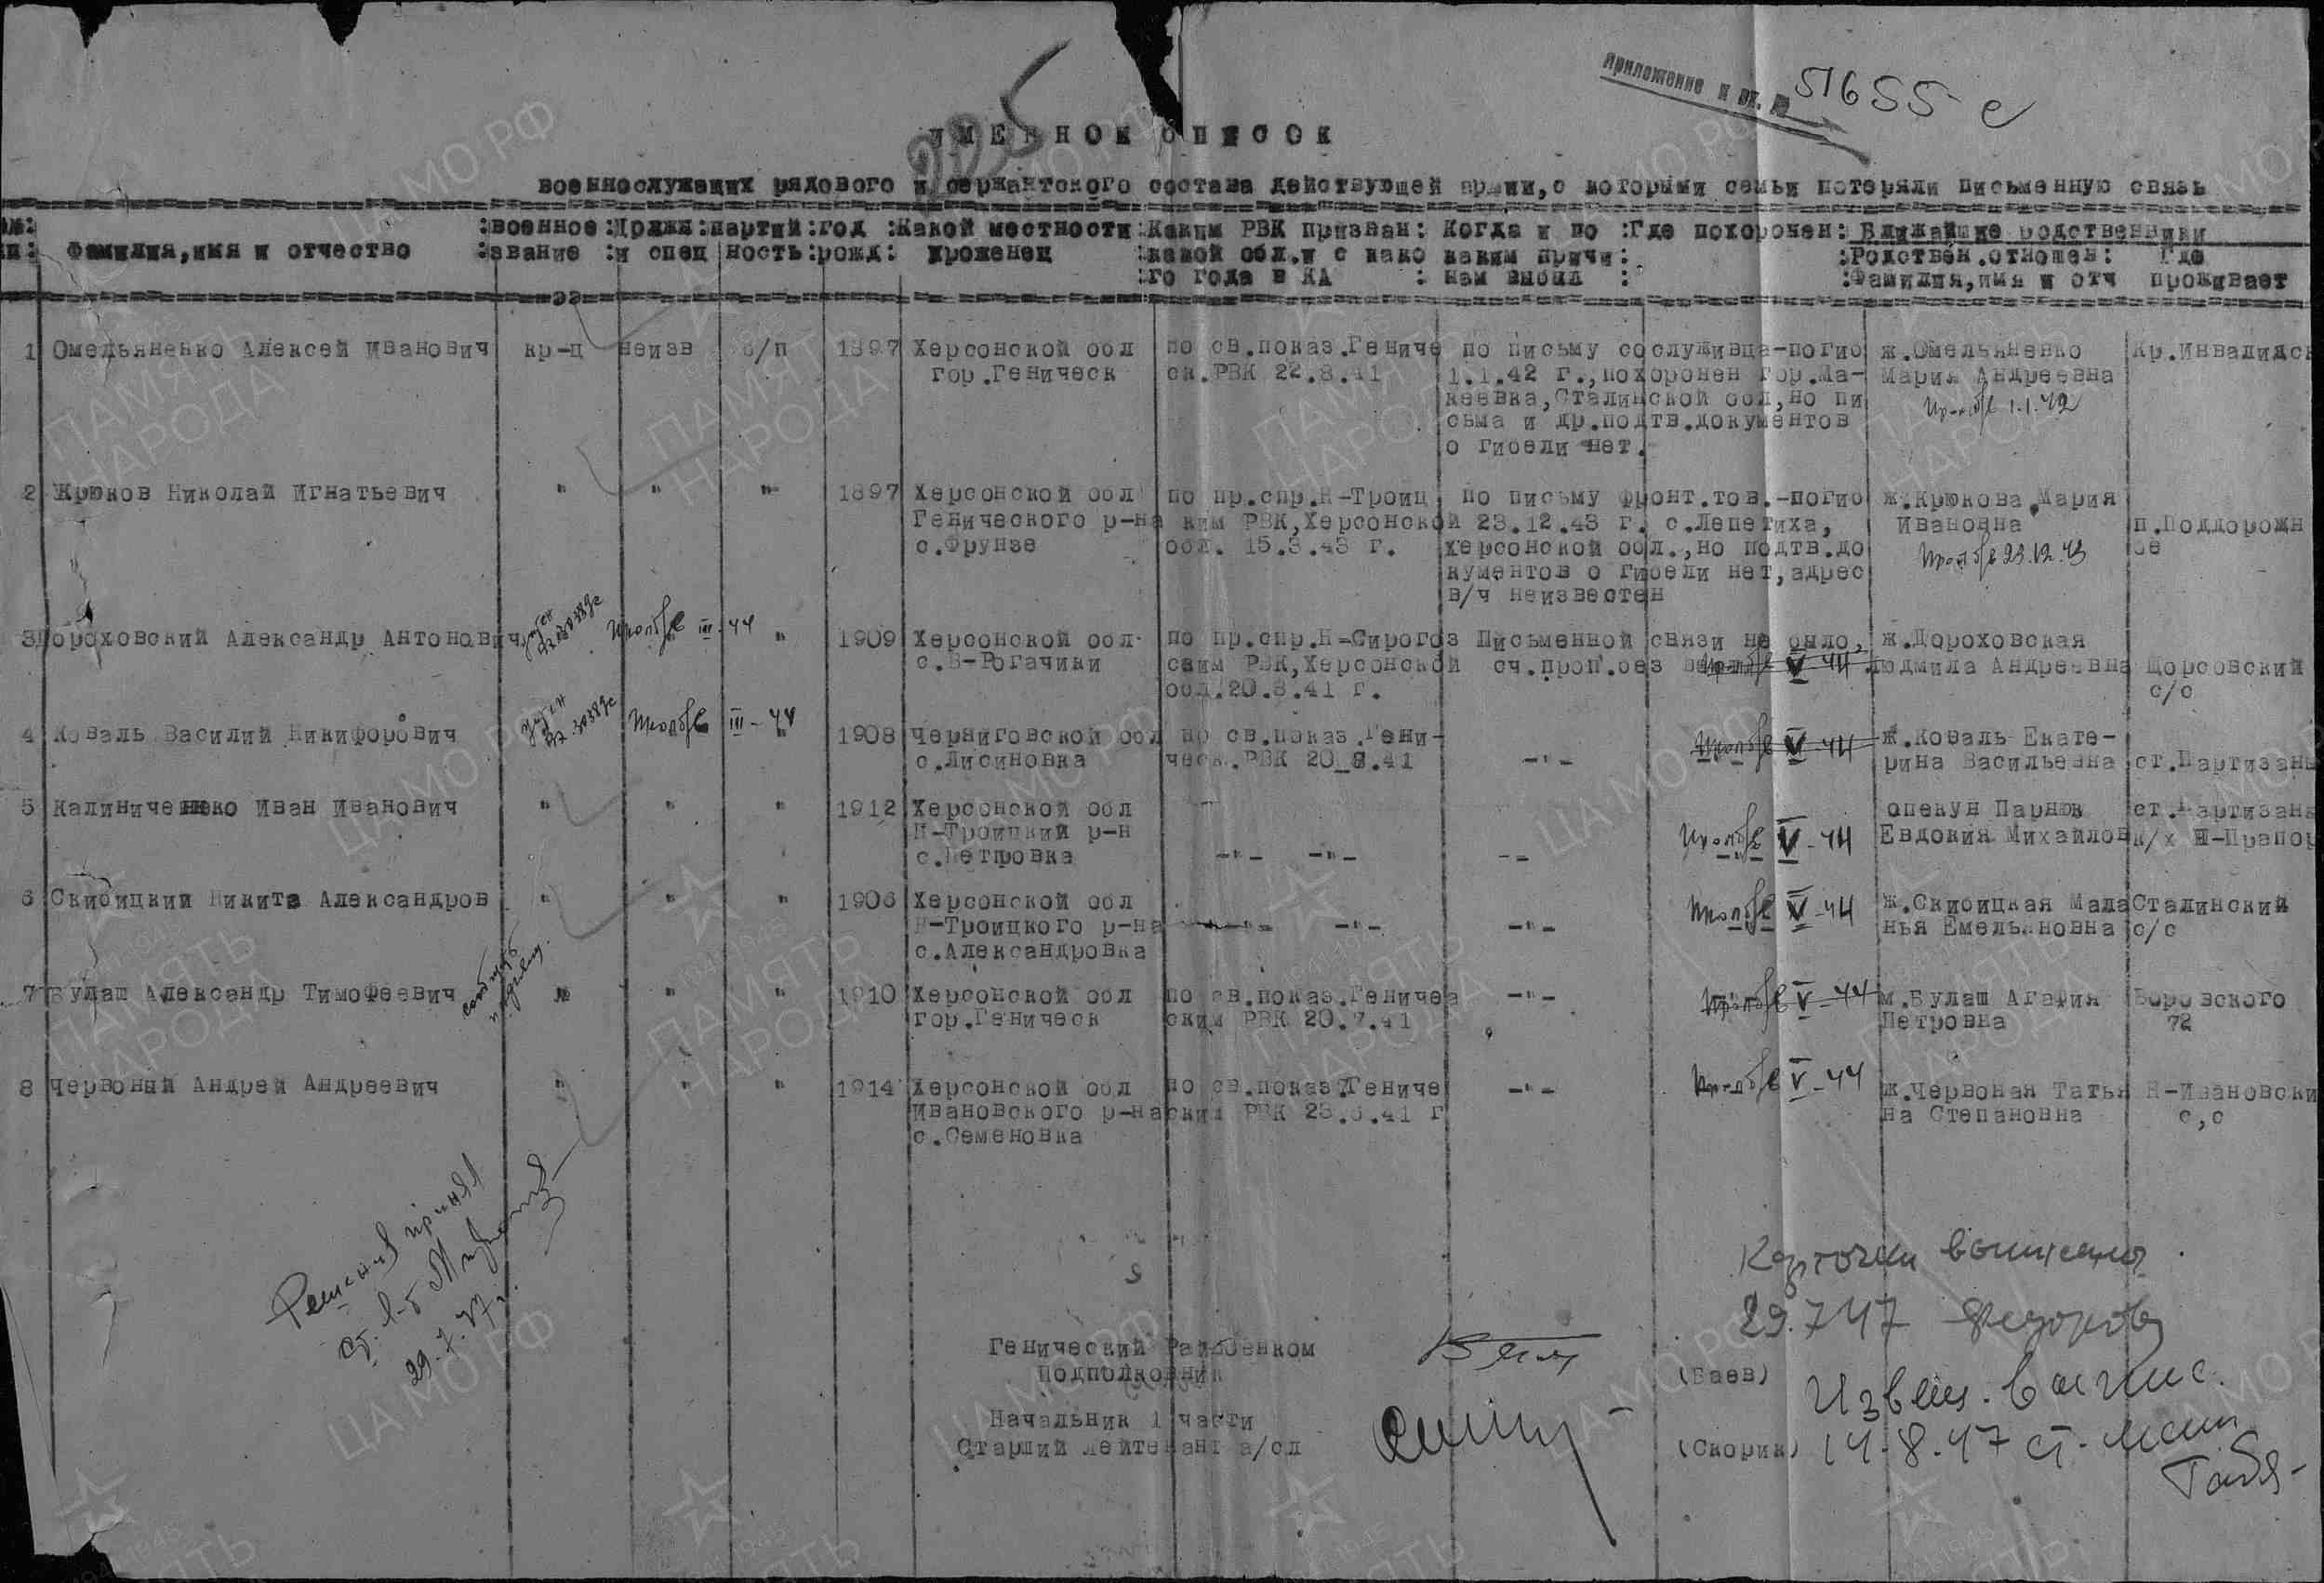 Приложение к вх. №
51655 с
925
ИМЕННОЙ СПИСОК
военнослужащих рядового и сержантского состава действующей армии, с которыми семьи потеряли письменную связь
:военное :Должн :партий :год :Какой местности :Каким РВК призван: Когда и по :Где похоронен: Ближайшие родственники
пп: Фамилия, имя и отчество :звание :и спец ность :рожд: уроженец :какой обл. и с како каким причи: :Родствен. отношен: Где
:го года в КА : нам выбыл : :Фамилия, имя и отч проживает
1 Омельяненко Алексей Иванович кр-ц неизв б/п 1897 Херсонской обл по св.показ.Гениче по письму сослуживца-погиб ж.Омельяненко Кр.Инвалидск
гор.Геническ ск.РВК 22.8.41 1.1.42 г.,похоронен гор.Ма- Мария Андреевна
кеевка,Сталинской обл,но пи
1.1.42
сьма и др.подтв.документов
о гибели нет.
2 Крюков Николай Игнатьевич " " " 1897 Херсонской обл по пр.спр.Н-Троиц по письму фронт.тов.-погиб ж.Крюкова Мария
Генического р-на ким РВК,Херсонской 23.12.43 г. с.Лепетиха, Ивановна п.Поддорожн
с.Фрунзе обл. 15.3.43 г. Херсонской обл.,но подтв.до ое
23.12.43
кументов о гибели нет,адрес
в/ч неизвестен
3 Дороховский Александр Антонович III-44 " 1909 Херсонской обл по пр.спр.Н-Сирогоз Письменной связи не было, ж.Дороховская
с.В-Рогачики ским РВК,Херсонской сч.проп.без V-44 Людмила Андреевна Щорсовский
обл.20.8.41 г. с/с
4 Коваль Василий Никифорович III-44 " 1908 Черниговской обл по св.показ.Гени- V-44 ж.Коваль Екате-
с.Лисиновка ческ.РВК 20_8.41 -"- рина Васильевна ст.Партизаны
5 Калиниченнко Иван Иванович " " " 1912 Херсонской обл опекун Парнюк ст.Партизаны
Н-Троицкий р-н V-44 Евдокия Михайлов к/х Ш-Прапор
с.Петровка -"- -"- --
6 Скибицкий Никита Александров " " " 1906 Херсонской обл V-44 ж.Скибицкая Мала Сталинский
Н-Троицкого р-на -"- -"- -"- нья Емельяновна с/с
с.Александровка
7 Булаш Александр Тимофеевич " " " 1910 Херсонской обл по св.показ.Геничес -"- V-44 м.Булаш Агафия Воровского
гор.Геническ ским РВК 20.7.41 Петровна 72
8 Червоный Андрей Андреевич " " " 1914 Херсонской обл по св.показ.Гениче -"- V-44 ж.Червоная Татья Н-Ивановски
Ивановского р-на ским РВК 23.8.41 г на Степановна с,с
с.Семеновка
Решения принял
29.7.47 г.
Карточки выписаны
29.7.47 Федорова
Генический Райвоенком
Подполковник (Баев)
Извещ. выпис.
Начальник 1 части
Старший лейтенант а/сл (Скорик) 14.8.47